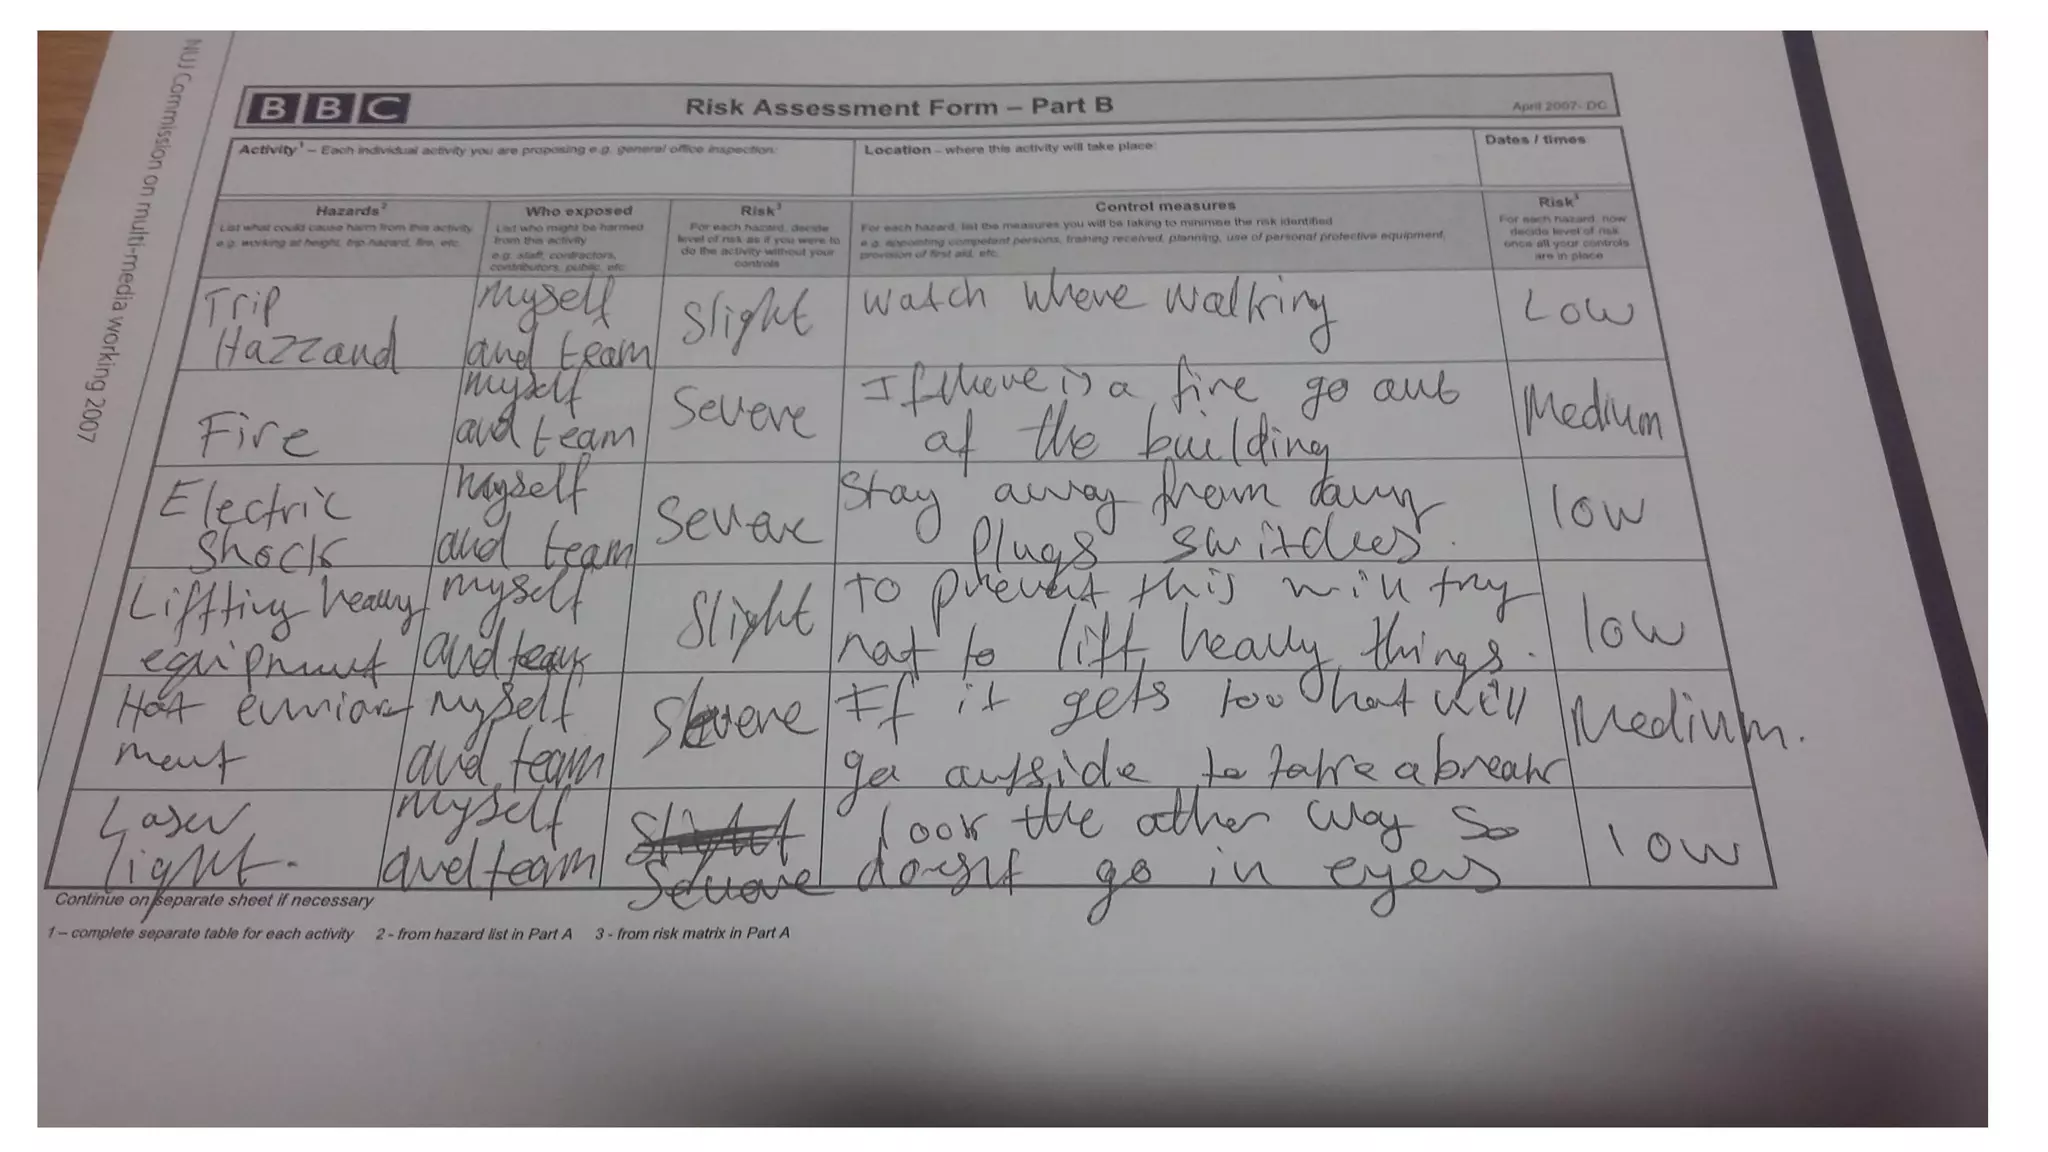 NUJ Commission on multi-media working 2007
BBC Risk Assessment Form – Part B April 2007- DG
Activity¹ – Each individual activity you are proposing e.g. general office inspection: Location – where this activity will take place: Dates / times
Hazards² Who exposed Risk³ Control measures Risk³
List what could cause harm from this activity
e.g. working at height, trip hazard, fire, etc.
List who might be harmed
from this activity
e.g. staff, contractors,
contributors, public, etc.
For each hazard, decide
level of risk as if you were to
do the activity without your
controls
For each hazard, list the measures you will be taking to minimise the risk identified
e.g. appointing competent persons, training received, planning, use of personal protective equipment,
provision of first aid, etc.
For each hazard, now
decide level of risk
once all your controls
are in place
Trip
Hazzard
myself
and team
Slight
watch where walking
Low
Fire
myself
and team
Severe
If there is a fire go out
of the building
Medium
Electric
Shock
myself
and team
Severe
Stay away from
plugs switches.
low
Liffting heavy
equipment
myself
and team
Slight
To prevent this will try
not to lift heavy things.
low
Hot
ment
myself
and team
Severe
If it gets too hot will
go outside to take a break
Medium.
Laser
light.
myself
and team
Slight
Severe
look the other way so
doesnt go in eyes
low
Continue on separate sheet if necessary
1 – complete separate table for each activity 2 - from hazard list in Part A 3 - from risk matrix in Part A